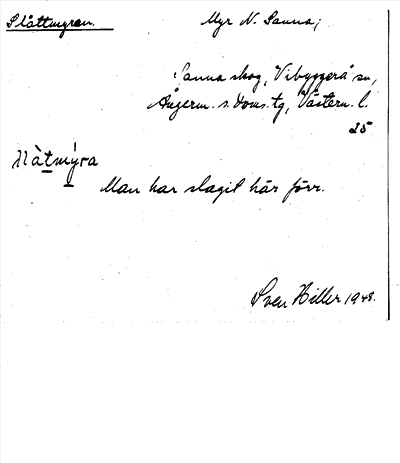 Slåttmyran. Myr N. Sanna;
Sanna skog, Vibyggerå sn,
Ångerm. s. doms. tg, Västern. l.
25
slàtmýra
Man har slagit här förr.
Sven Hiller 1948.